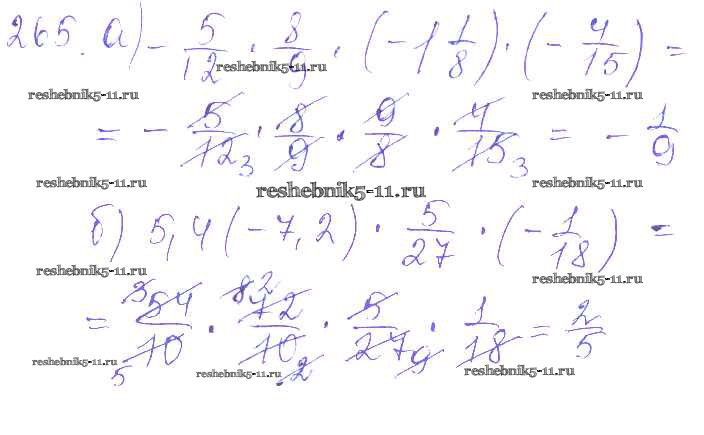 265. а) - 5/12 · 8/9 · (-1 1/8) · (- 4/15) =
reshebnik5-11.ru
reshebnik5-11.ru reshebnik5-11.ru
= - 5/12 3 · 8/9 · 9/8 · 4/15 3 = - 1/9
reshebnik5-11.ru reshebnik5-11.ru
reshebnik5-11.ru
б) 5,4 (-7,2) · 5/27 · (- 1/18) =
reshebnik5-11.ru reshebnik5-11.ru
= 54/10 5 · 8 2 72/10 2 · 5/27 9 · 1/18 = 2/5
reshebnik5-11.ru reshebnik5-11.ru reshebnik5-11.ru